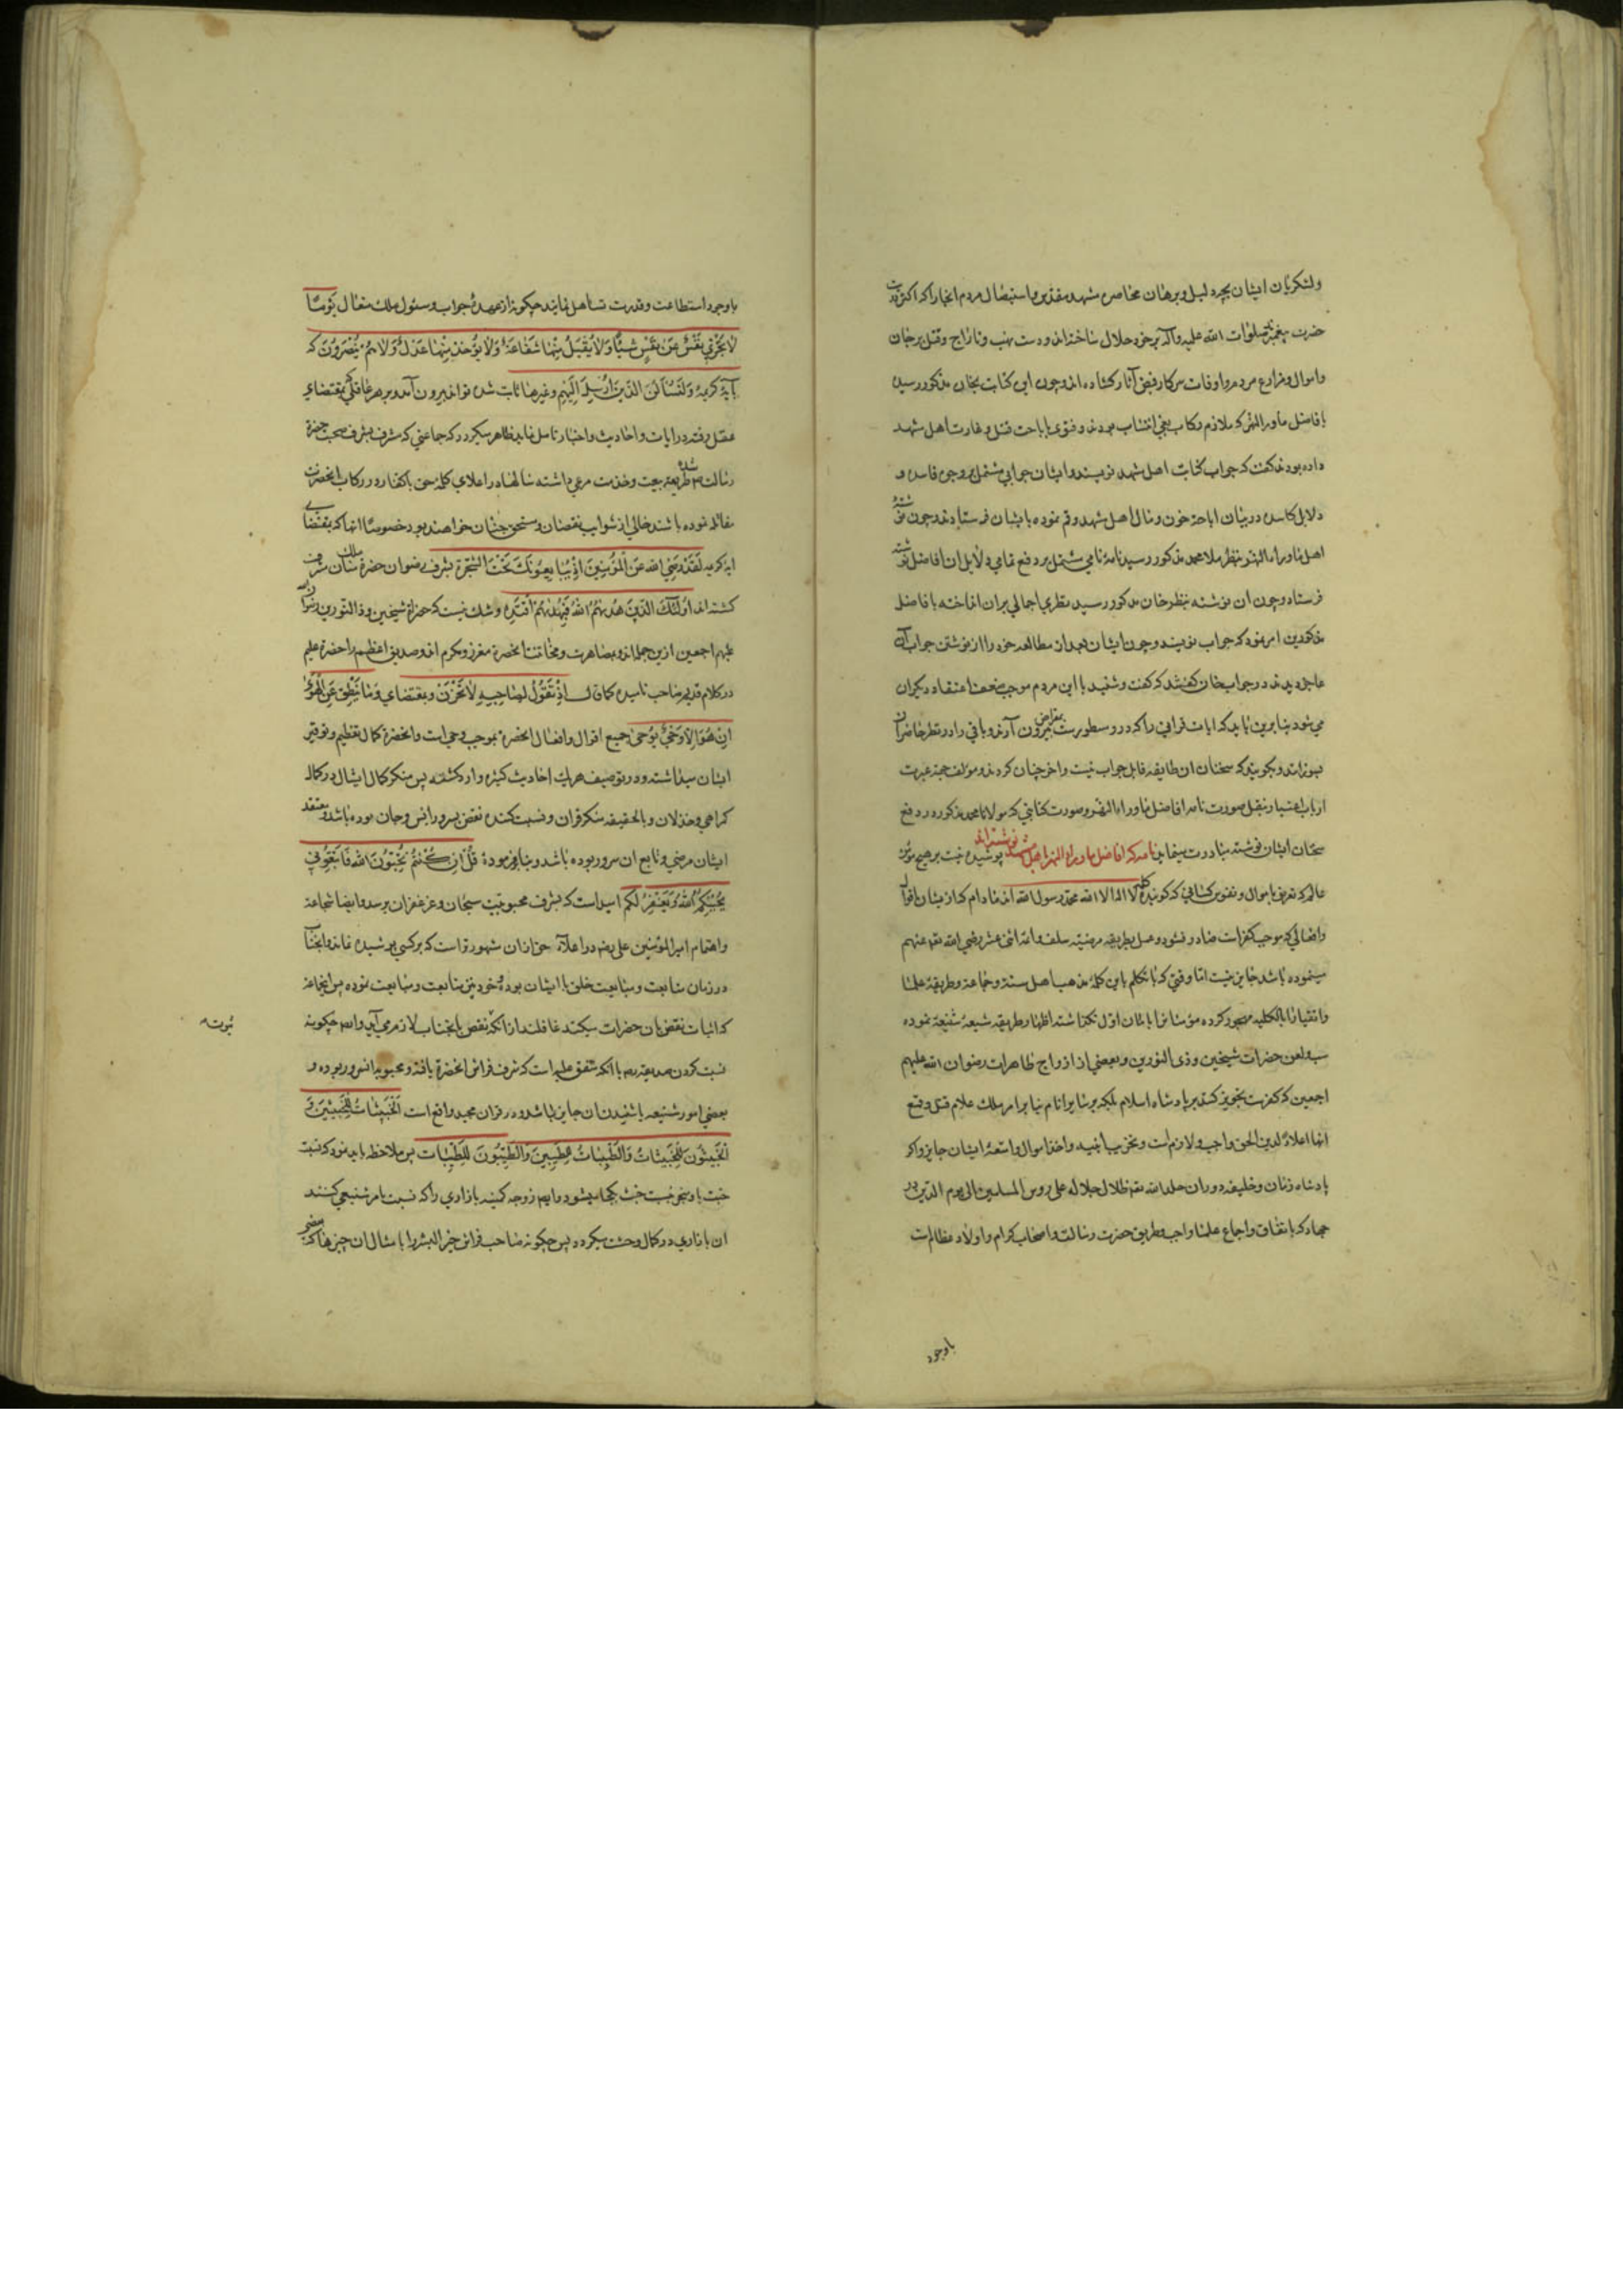 ولشکریان ایشان بچه دلیل و برهان محاصره مشهد مقدس و استیصال مردم انجا را که اکثر ذریت
حضرت پیغمبرند صلوات الله علیه وآله بر خود حلال ساخته‌اند و دست نهب و تاراج و قتل بر جان
و اموال و مزارع مردم و اوقات سرکار فیض آثار کشاده اند و چون این کتابت بخان مذکور رسید
بافاضل ماوراالنهر که ملازم رکاب بغی انتساب بودند و فتوی باباحت قتل و غارت اهل مشهد
داده بودند گفت که جواب کتابت اهل مشهد نویسند و ایشان جوابی مشتمل بر وجوه فاسده و
دلایل کاسده در بیان اباحة خون و مال اهل مشهد رقم نموده بایشان فرستادند و چون نوشتهٔ
اهل ماوراءالنهر بنظر ملا محمد مذکور رسید نامهٔ نامی مشتمل بر دفع تمامی دلایل ان افاضل نوشته
فرستاد و چون ان نوشته بنظر خان مذکور رسید نظری اجمالی بران انداخته بافاضل
مذکورین امر نمود که جواب نویسند و چون ایشان بعد از مطالعه خود را از نوشتن جواب آن
عاجز دیدند در جواب خان گفتند که گفت و شنید با این مردم موجب ضعف اعتقاد دیگران
می شود بنا برین باید که ایات قرانی را که درو مسطورست بمقراض بیرون آرند و باقی را در نظر حاضران
بسوزانند و بگویند که سخنان ان طایفه قابل جواب نیست و اخر چنان کردند و مولف جهة عبرت
ارباب اعتبار بنقل صورت نامه افاضل ماوراءالنهر و صورت کتابتی که مولانا محمد مذکور در دفع
سخنان ایشان نوشته مبادرت مینماید نامه که افاضل ماوراء النهر باهل مشهد نوشته‌اند پوشیده نیست بر هیچ مؤمن
عالم که تعرض باموال و نفوس کسانی که گویندهٔ کلمه لا اله الا الله محمد رسول الله اند مادام که از یشان اقوال
و افعالی که موجب کفرات صادر نشود و عمل بطریقه مرضیه سلف و ائمه اثنی عشر رضی الله تعه عنهم
مینموده باشند جایز نیست اما وقتی که با تکلم باین کلمه مذهب اهل سنة و جماعة و طریقهٔ علما
و اتقیا را بالکلیه مهجور کرده مؤمنانرا بامان اول نگذاشته اظهار طریقه شیعهٔ شنیعه نموده
سب و لعن حضرات شیخین و ذی النورین و بعضی از ازواج طاهرات رضوان الله علیهم
اجمعین که کفرست تجویز کنند بر پادشاه اسلام بلکه بر سایر انام بنا بر امر ملک علام قتل و قمع
انها اعلاءً لدین الحق واجب و لازم است و تخریب ابنیه و اخذ اموال و امتعهٔ ایشان جایز و اگر
پادشاه زمان و خلیفه دوران خلد الله تعه ظلال جلاله علی روس المسلمین الی یوم الدین در
جهاد که باتفاق و اجماع علما واجب و طریق حضرت رسالت و اصحاب کرام و اولاد عظام است
باوجود
باوجود استطاعت و قدرت تساهل نمایند چگونه از عهدهٔ جواب و سئول ملک متعال یَومًا
لا تَجزی نَفسٌ عَن نَفسٍ شَیئًا وَلا یُقبَلُ مِنها شَفاعَةٌ وَلا یُؤخَذُ مِنها عَدلٌ وَلا هُم یُنصَرُونَ که
بآیهٔ کریمهٔ وَلَنَسأَلَنَّ الذّینَ اُرسِلَ اِلَیهِم و غیرها ثابت شده تواند بیرون آمد و بر هر عاقلی که بمقتضای
عقل رفته در ایات و احادیث و اخبار تامل نماید ظاهر میکردد که جماعتی که مشرف بشرف صحبت حضرة
رسالت م شده طریقه بیعت و خدمت مرعی داشته سالها در اعلای کلمهٔ حق با کفار در رکاب انحضرت
مقاتله نموده باشند خالی از شوایب نقصان و مستحق جنان خواهند بود خصوصا انها که بمقتضای
ایه کریمه لَقَد رَضِیَ الله عَنِ المُؤمِنینَ اِذ یُبایِعُونَکَ تَحتَ الشَّجَرَة بشرف رضوان حضرة ملک منان مشرف
کشته اند اُولئِکَ الَّذینَ هَدیهُمُ اللهُ فَبِهُدیهُمُ اقتَدِه و شک نیست که حضرة شیخین و ذا النورین رضوان الله
علیهم اجمعین ازین جمله اند و بمصاهرت و مخاتنت انحضرة معزز و مکرم اند و صدیق اعظم را حضرة علیم
در کلام قدیم صاحب نامیده کما قال اِذ یَقُولُ لِصاحِبِهِ لا تَحزَن و بمقتضای وَما یَنطِقُ عَنِ الهَوی
اِن هُوَ اِلّا وَحیٌ یُوحی جمیع اقوال و افعال انحضرة بموجب وحی است و انحضرة کمال تعظیم و توقیر
ایشان میداشته و در توصیف هر یک احادیث کثیره وارد کشته پس منکر کمال ایشان در کمال
کمراهی و خذلان و بالحقیقه منکر قران و نسبت کننده نقص بسرور انس و جان بوده باشد و معتقد
ایشان مرضی و تابع ان سرور بوده باشد و بنا بفرمودهٔ قُل اِن کُنتُم تُحِبّوُنَ الله فَاتَّبِعُونی
یُحبِبکُمُ اللهُ وَیَغفِر لَکُم امید است که بشرف محبوبیت سبحان و عز غفران برسد و ایضا شجاعة
و اهتمام امیر المؤمنین علی رضه در اعلاء حق از ان مشهورتر است که بر کسی پوشیده ماند و انجناب
در زمان متابعت و مبایعت خلق با ایشان بوده و خود نیز متابعت و مبایعت نموده پس انجماعة
که اثبات نقص بان حضرات میکنند غافلند از انکه نقص بانجناب لازم می آید و ایضا چگونه
نسبت کردن صدیقه رضه با انکه متفق علیه است که شرف فراش انحضرة یافته و محبوبه انسرور بوده و
بعضی امور شنیعه یا شنیدن ان جایز باشد و در قران مجید واقع است اَلخَبیثاتُ لِلخَبیثینَ وَ
الخَبیثُونَ لِلخَبیثاتُ وَالطَّیِّباتُ لِلطَّیِّبینَ وَالطَّیِّبُونَ لِلطَّیِّبات پس ملاحظه باید نمود که نسبت
خبث باو منجر نسبت خبث بکجا میشود و ایضا زوجه کمینه بازاری را که نسبت بامر شنیعی کنند
ان بازاری در کمال وحشت میکردد پس چگونه صاحب فراش خیر البشر را بامثال ان چیزها که